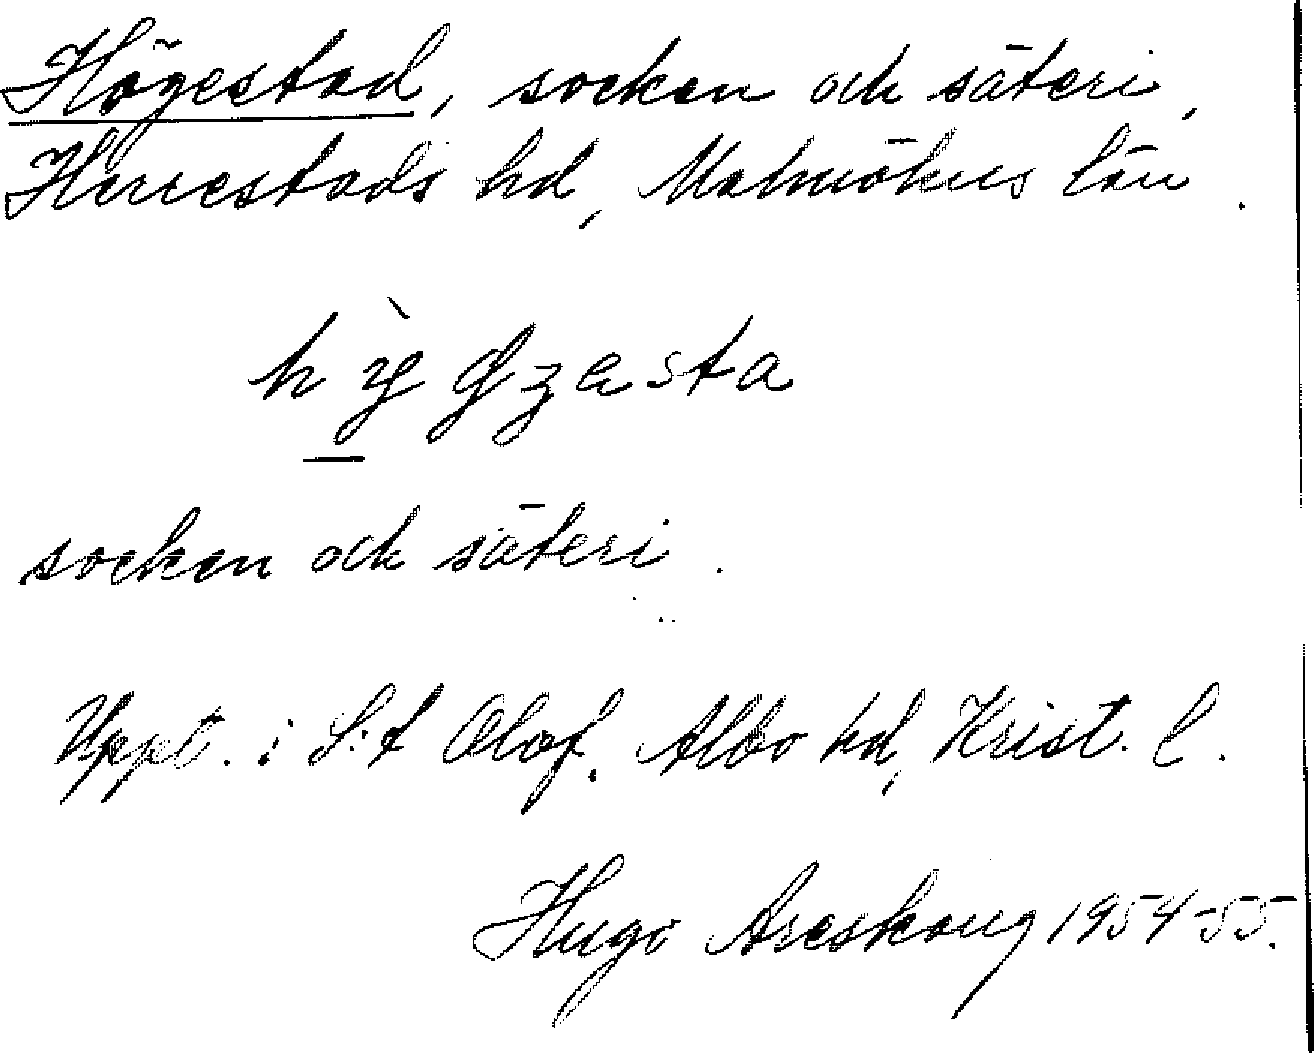 Högestad, socken och säteri,
Herrestads hd, Malmöhus län.
socken och säteri.
Uppt. i S:t Olof, Albo hd, Krist. l.
Hugo Areskoug 1954-55.